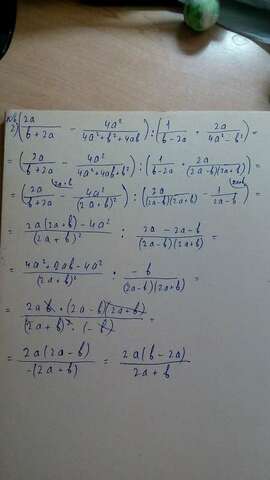 №6
2) (2a/(b+2a) - 4a²/(4a²+b²+4ab)) : (1/(b-2a) · 2a/(4a²-b²)) =
= (2a/(b+2a) - 4a²/(4a²+4ab+b²)) : (1/(b-2a) · 2a/((2a-b)(2a+b))) =
= (2a/(b+2a) (2a+b - 4a²/(2a+b)²) : (2a/((2a-b)(2a+b)) - 1/(2a-b) (2a+b) =
= (2a(2a+b)-4a²)/(2a+b)² : (2a-2a-b)/((2a-b)(2a+b)) =
= (4a²+2ab-4a²)/(2a+b)² · -b/((2a-b)(2a+b)) =
= (2ab·(2a-b)(2a+b))/((2a+b)²·(-b)) =
= 2a(2a-b)/(-(2a+b)) = 2a(b-2a)/(2a+b)